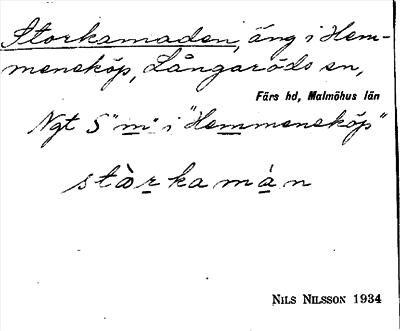 Storkamaden, äng i Hem-
menesköp, Långaröds sn,
Färs hd, Malmöhus län
Ngt S "m" i "Hemmenesköp"
stòrkamàn
NILS NILSSON 1934